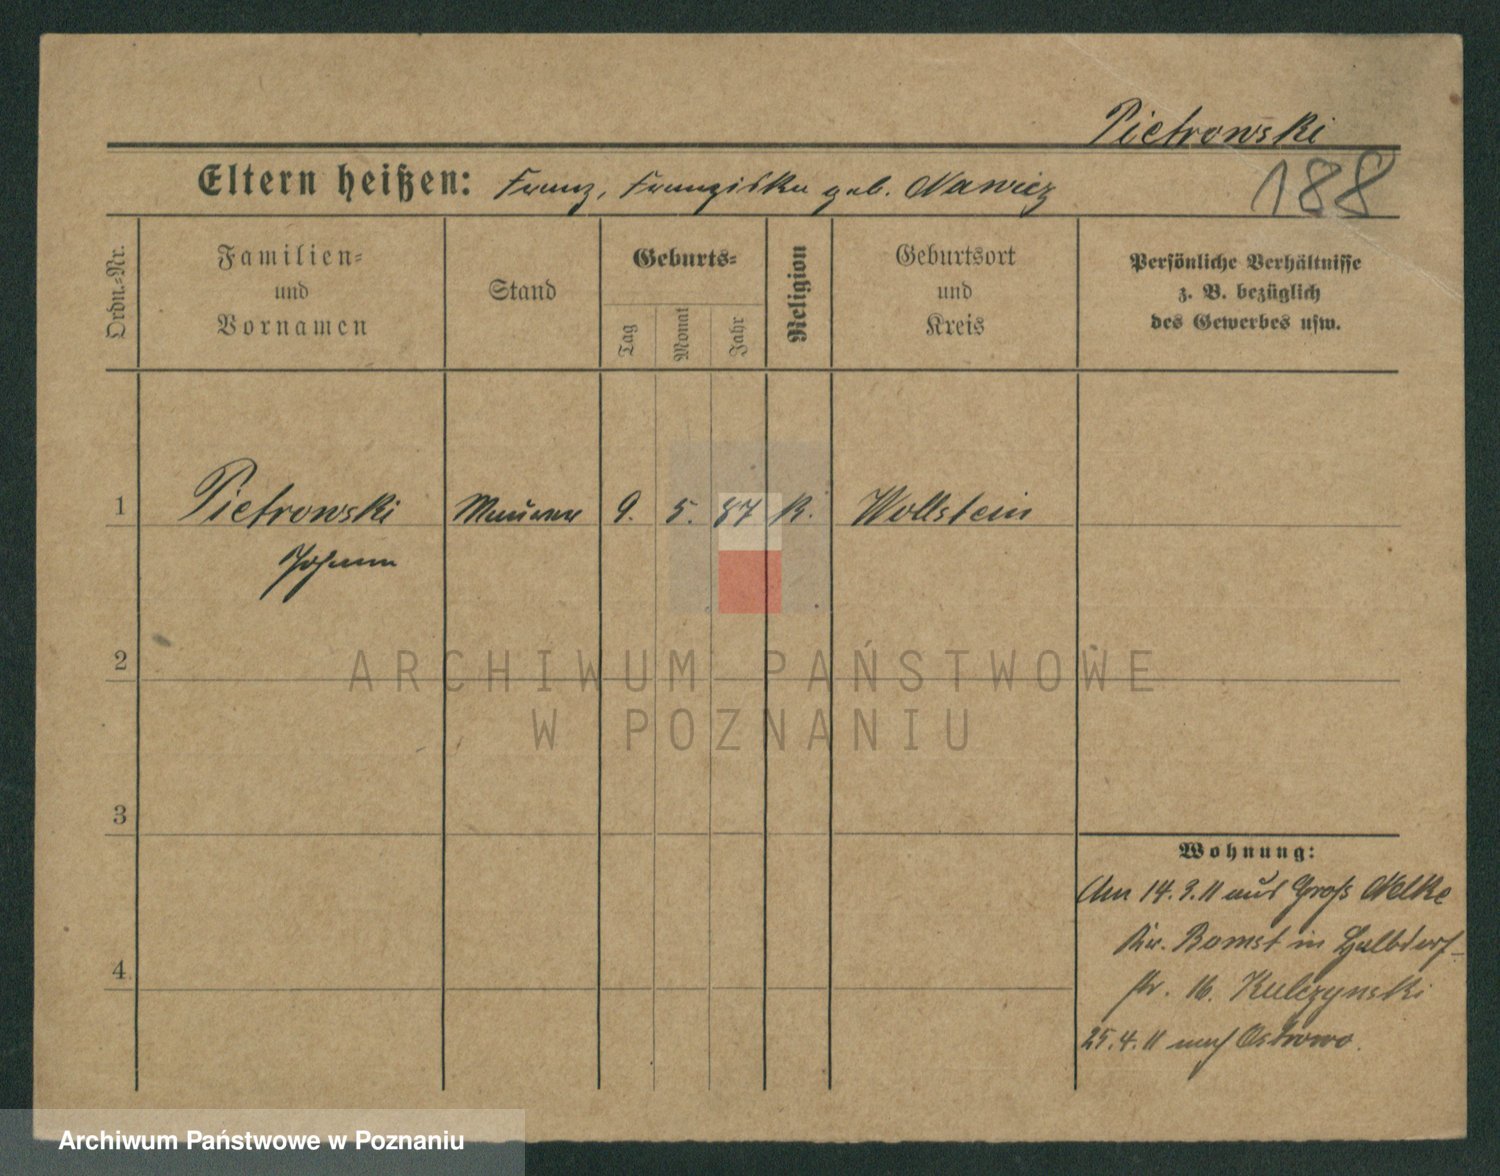 Pietrowski
188
Eltern heißen: Franz, Franziska geb. Nawicz
Ordn.-Nr.
Familien-
und
Vornamen
Stand
Geburts-
Tag
Monat
Jahr
Religion
Geburtsort
und
Kreis
Persönliche Verhältnisse
z. B. bezüglich
des Gewerbes usw.
1 Pietrowski Maurer 9. 5. 87 k. Wollstein
Johann
2
ARCHIWUM PAŃSTWOWE
W POZNANIU
3
Wohnung:
Am 14.3.11 aus Groß Nelke
Kr. Bomst in Halbdorf-
str. 16. Kulczynski
4
25.4.11 nach Ostrowo.
Archiwum Państwowe w Poznaniu